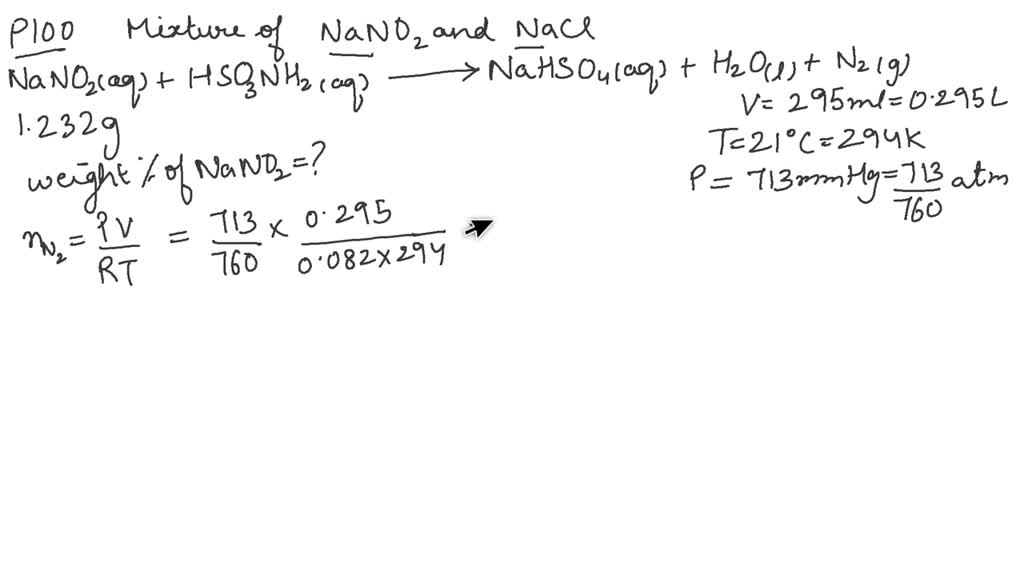 P100 Mixture of NaNO2 and NaCl
NaNO2(aq) + HSO3NH2(aq) ⟶ NaHSO4(aq) + H2O(l) + N2(g)
1.232g
V = 295ml = 0.295L
T = 21°C = 294K
weight % of NaNO2 = ?
P = 713mmHg = 713/760 atm
nN2 = PV/RT = 713/760 × 0.295/0.082×294